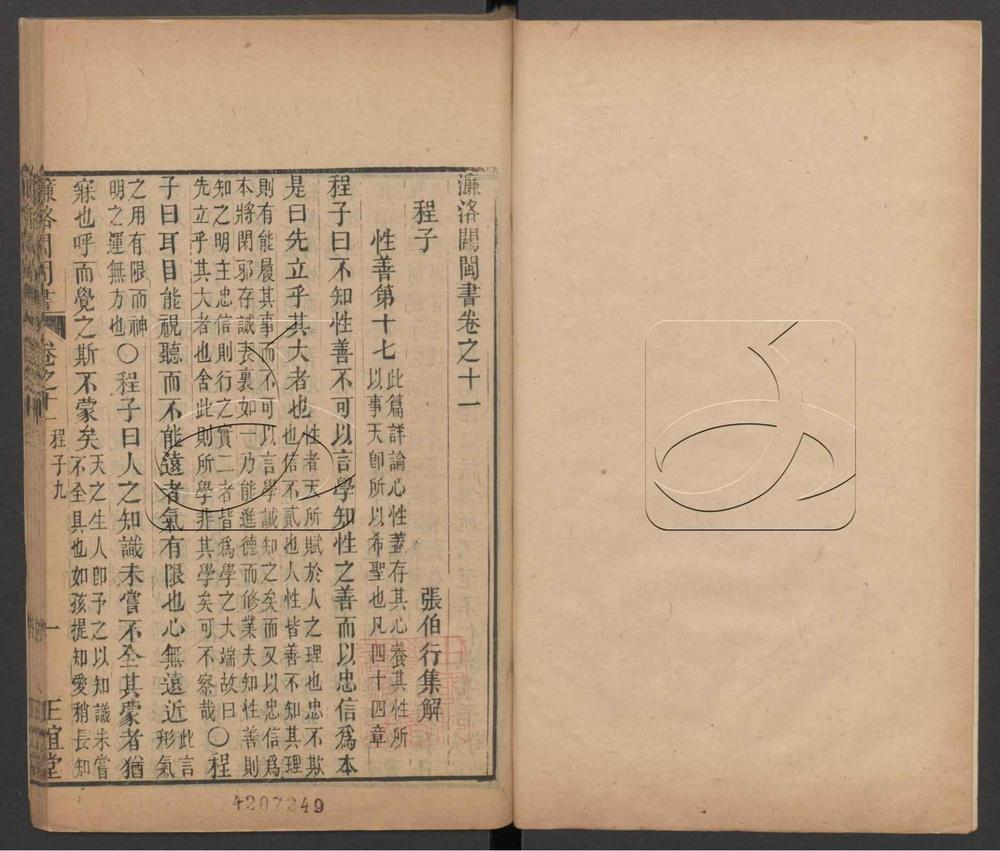 濂洛關閩書卷之十一
程子
張伯行集解
性善第十七
此篇詳論心性蓋存其心養其性所
以事天卽所以希聖也凡四十四章
程子曰不知性善不可以言學知性之善而以忠信爲本
是曰先立乎其大者也
性者天所賦於人之理也忠不欺
也信不貳也人性皆善不知其理
則有能履其事而不可以言學誠知之矣而又以忠信爲
本將閑邪存誠表裏如一乃能進德而修業夫知性善則
知之明主忠信則行之實二者皆爲學之大端故曰
先立乎其大者也舍此則所學非其學矣可不察哉
〇程
子曰耳目能視聽而不能遠者氣有限也心無遠近
此言
形氣
之用有限而神
明之運無方也
〇程子曰人之知識未嘗不全其蒙者猶
寐也呼而覺之斯不蒙矣
天之生人卽予之以知識未嘗
不全具也如孩提知愛稍長知
濂洛關閩書
卷之十一
程子九
一
正誼堂
4207249